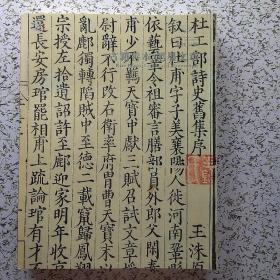 杜工部詩史舊集序
王洙原
叙曰杜甫字子美襄陽人徙河南鞏縣
依藝鞏令祖審言膳部員外郎父閑奉
甫少不羈天寶中獻三賦召試文章
尉辭不行改右衛率府胄曹天寶末
亂鄜獨轉陷賊中至德二載竄歸鳳翔
宗授左拾遺詔許至鄜迎家明年收京
還長安房琯罷相甫上疏論琯有才不